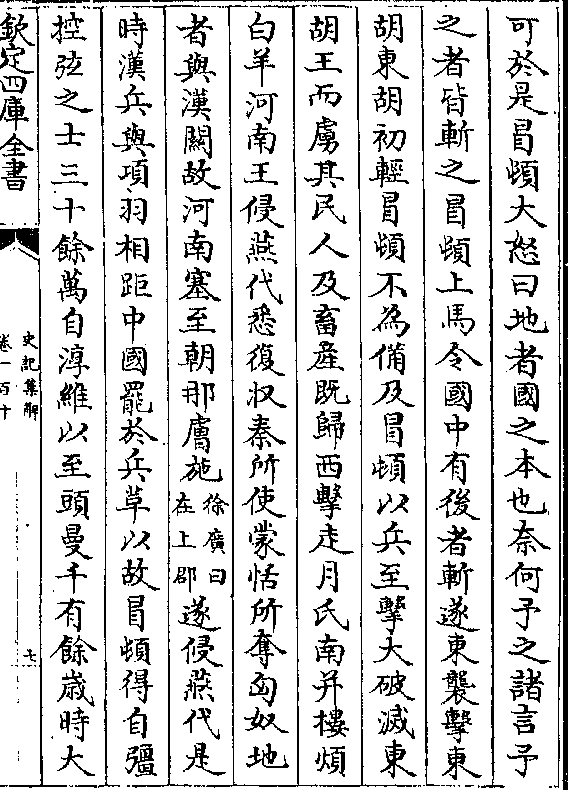 可於是冒頓大怒曰地者國之本也奈何予之諸言予
之者皆斬之冒頓上馬令國中有後者斬遂東襲擊東
胡東胡初輕冒頓不為備及冒頓以兵至擊大破滅東
胡王而虜其民人及畜產既歸西擊走月氏南并樓煩
白羊河南王侵燕代悉復收秦所使蒙恬所奪匈奴地
者與漢關故河南塞至朝那膚施徐廣曰在上郡遂侵燕代是
時漢兵與項羽相距中國罷於兵革以故冒頓得自彊
控弦之士三十餘萬自淳維以至頭曼千有餘歲時大
欽定四庫全書
史記集解
卷一百十
七